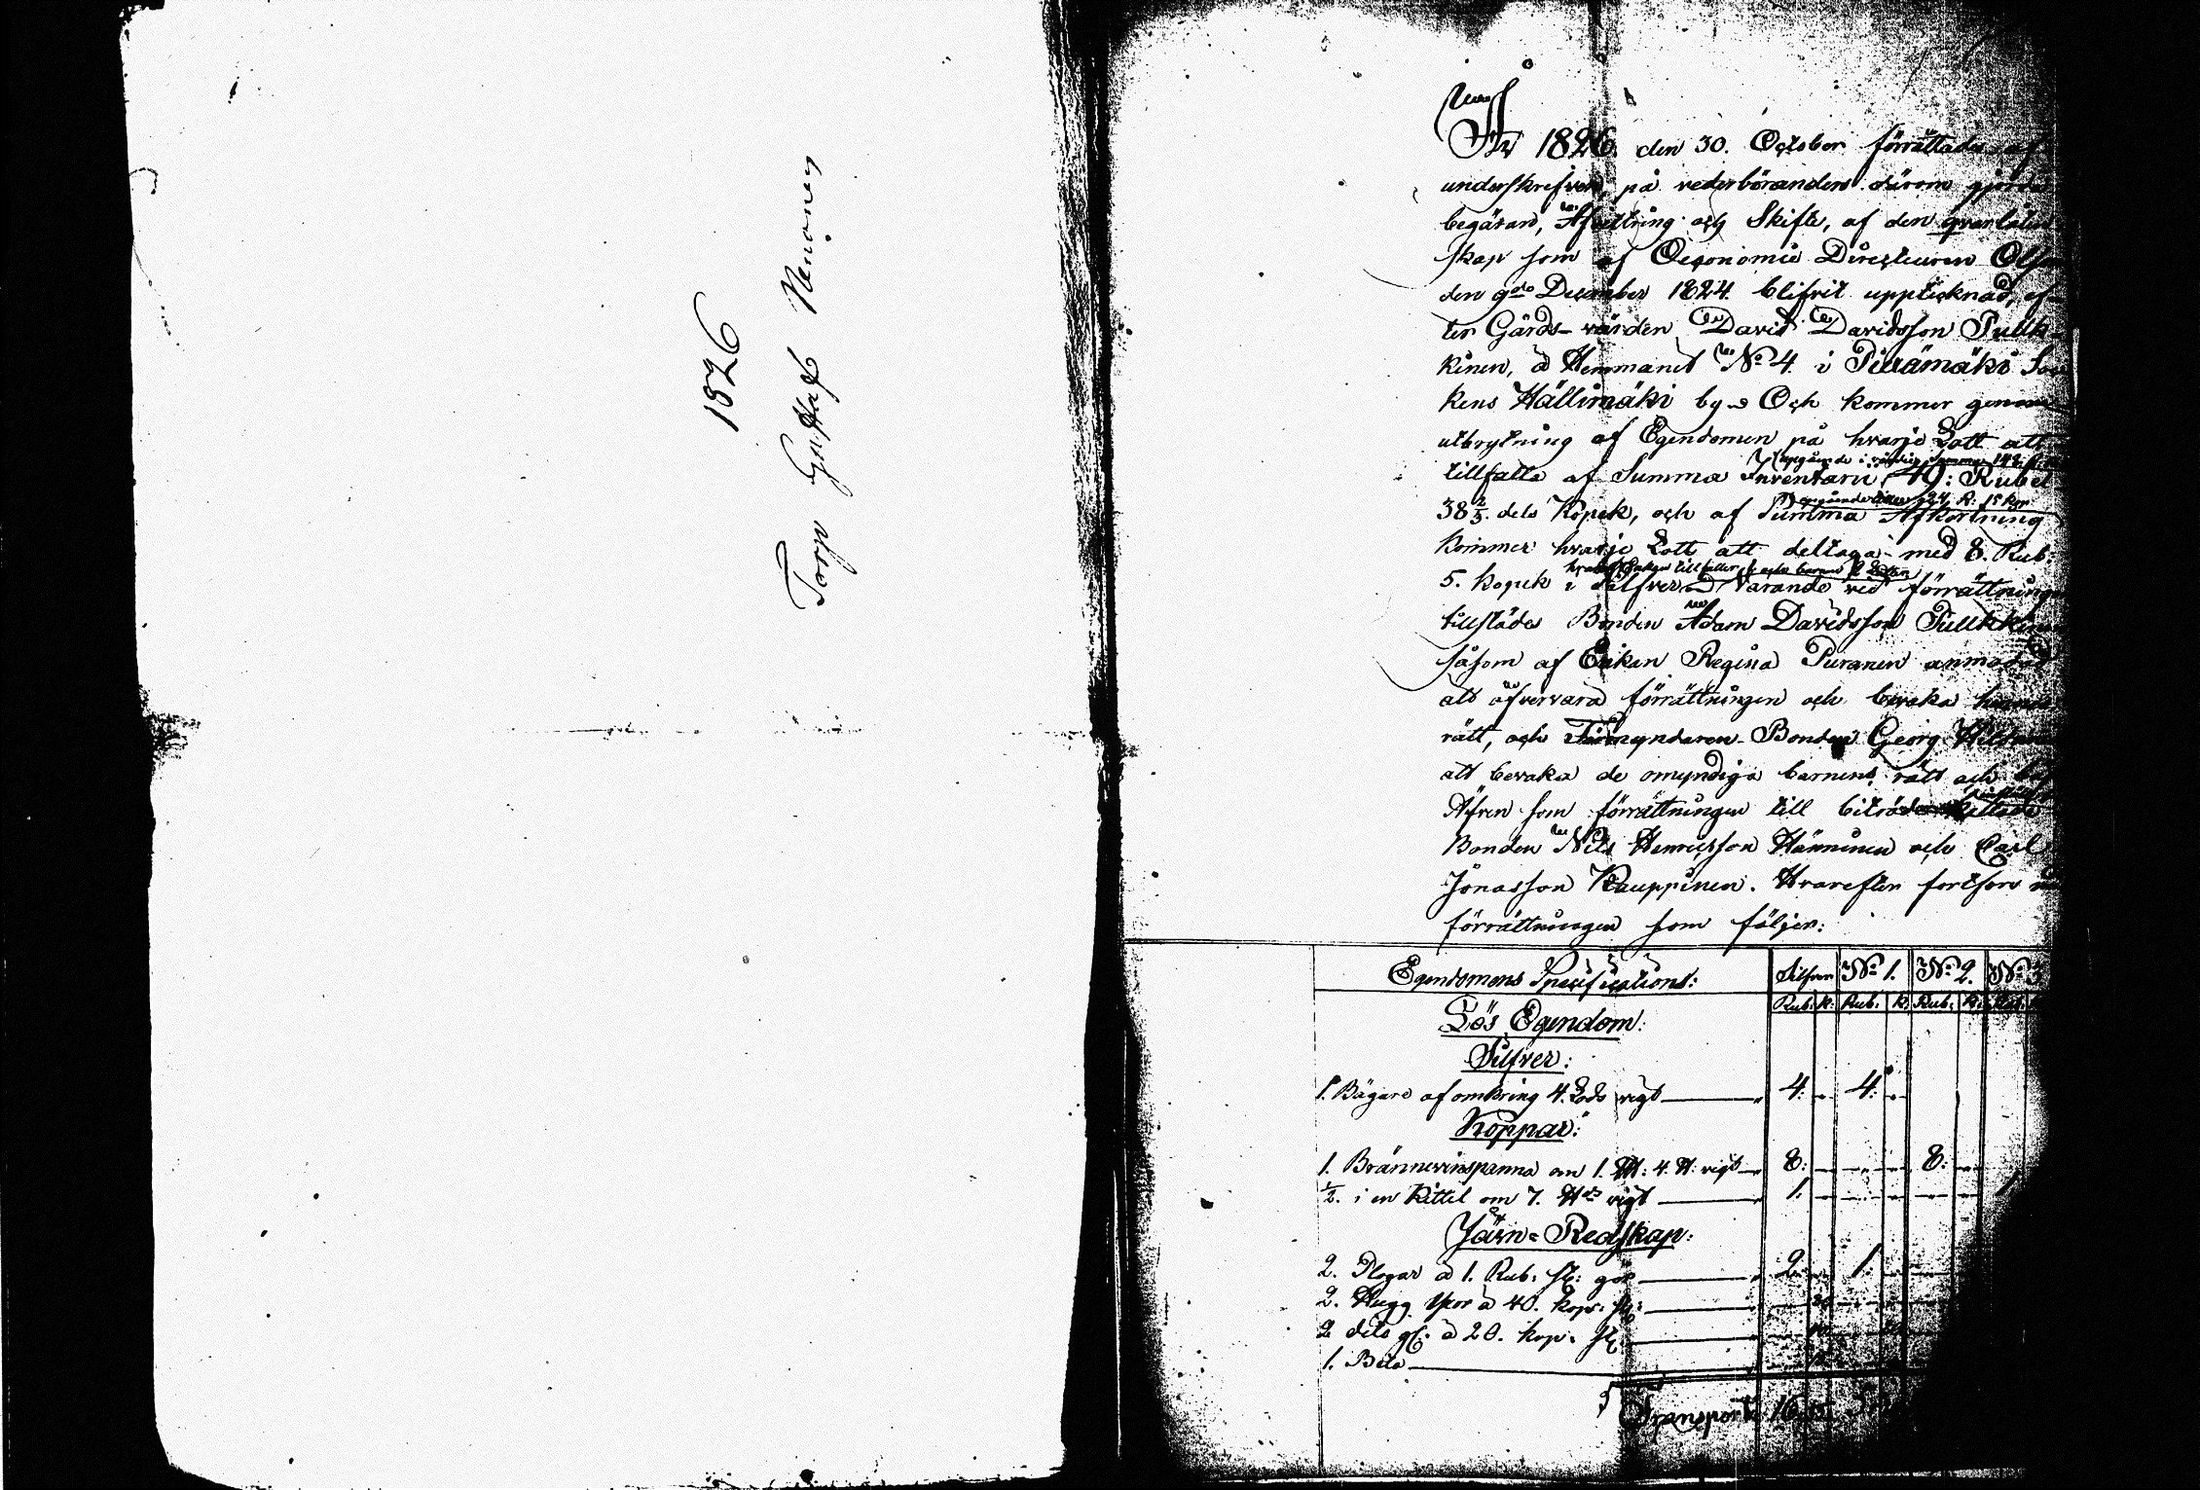 1826
Torp Gustaf Nenonen
År 1826. den 30. October förrättades af
underskrifven, på vederböranders därom gjorda
begäran, Afvittring och Skifte, af den qvarlåten
skap som af Oeconomie Directeuren
den 9de December 1824. blifvit upptecknad, ef-
ter Gårds-värden David Davidsson Pulk-
kinen, å Hemmanet No 4. i Pielämäki Soc
kens Hällimäki by Och kommer genom
utbrytning af Egendomen på hvarje Lott att
tillfalla af Summa Inventarii, 49: Rubel
38 2/3. dels Kopek, och af Summa Afkortning
kommer hvarje Lott att deltaga med 8. Rub:
5. kopek i Silfver Varande vid förrättningen
tillstädes Bonden Adam Davidsson Pulkkinen
såsom af Enkan Regina Puranen anmodad
att öfvervara förrättningen och bevaka hennes
rätt, och Förmyndaren Bonden Georg
att bevaka de omyndiga barnens rätt och
Äfven som förrättningen till biträde
Bonden Nils Henricsson Hänninen och Carl
Jonasson Kauppinen. Hvarefter fortfors med
förrättningen som följer:
Egendomens Specification: Silfver No 1. No 2. No 3
Rub: K. Rub: K. Rub: K. Rub:
Lös Egendom:
Silfver:
1. Bägare af omkring 4. Lods vigt 4: 4:
Koppar:
1. Brännevinspanna om 1. 4. vigt 8: 8:
1/2. i en Kittel om 7. vigt 1: 1
Järn-Redskap:
2. Plogar à 1. Rub: st: gör 2 1
2. Hugg Yxor à 40. kop: st:
2 dito gl: à 20. kop. st:
1. Bila
Transport 16